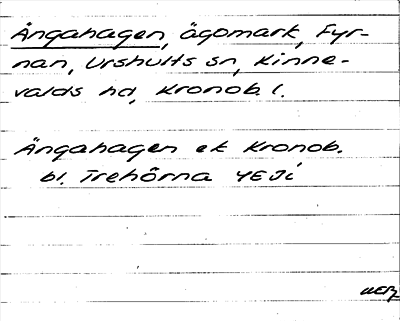 Ängahagen, ägomark, Fyr-
nan, Urshults sn, Kinne-
valds hd, Kronob. l.
Ängahagen ek Kronob.
bl. Trehörna 4E Ji